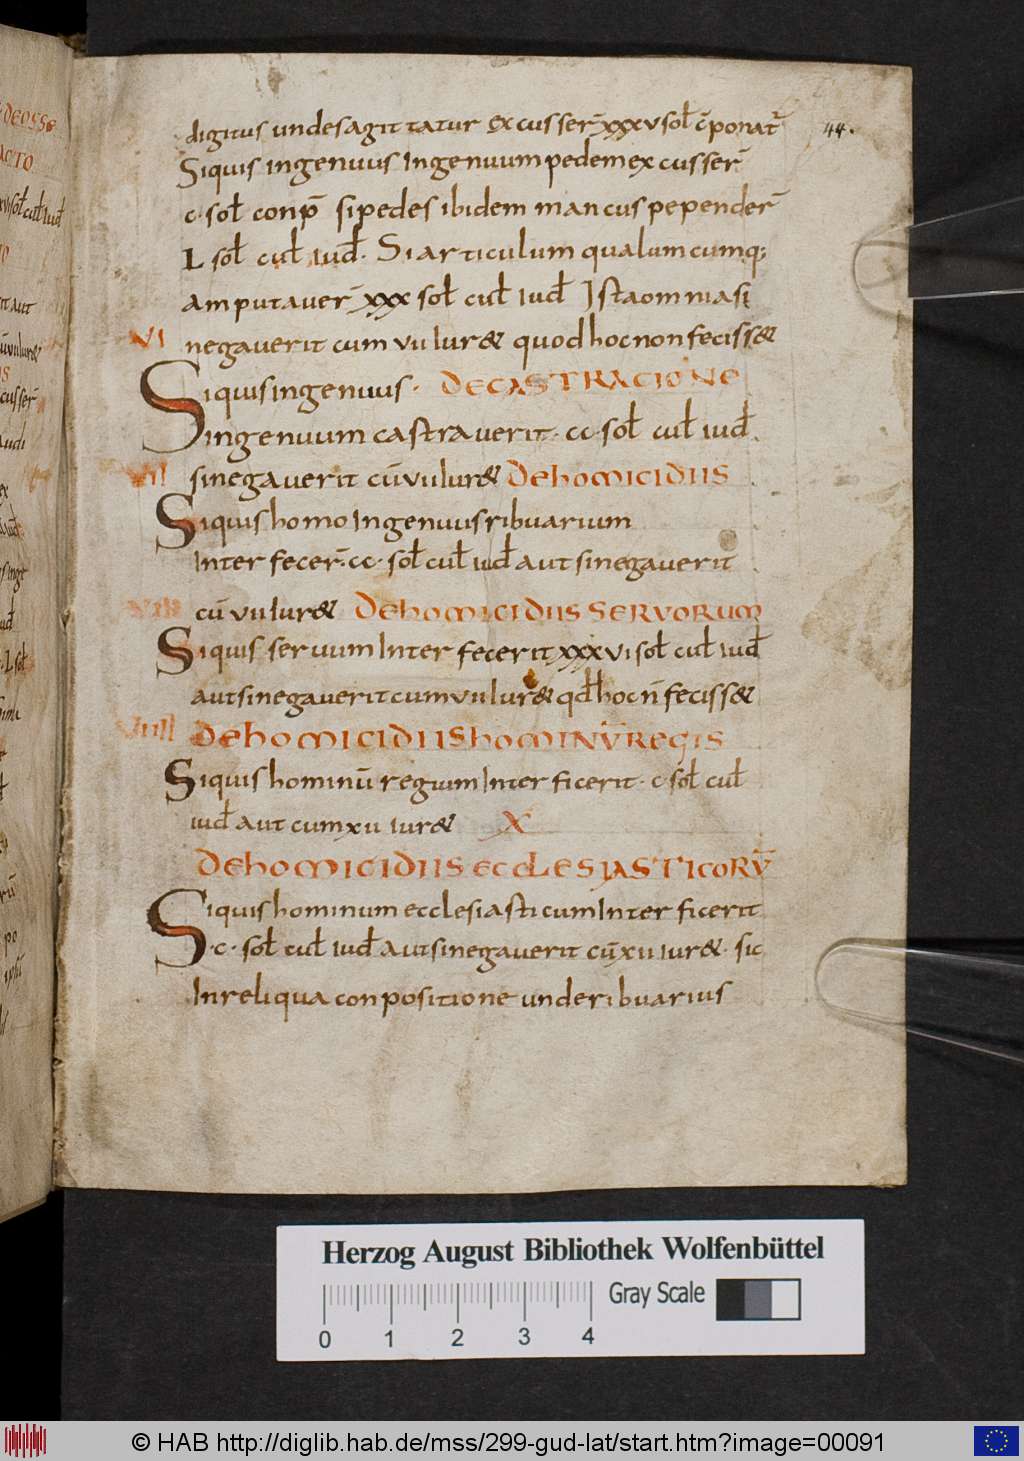 digitus undesagittatur excusser̄ xxxv sol̄ c̄ponat̄
44.
Siquis ingenuus Ingenuum pedem excusser̄
c· sol̄ conp̄ si pedes ibidem mancus pepender̄
L sol̄ cul̄ iud̄· Si articulum qualumcumq;
amputauer̄ xxx sol̄ cul̄ iud̄ Ista omnia si
VI negauerit cum vii iur& quod hoc non feciss&
Siquis ingenuus· DE CASTRACIONE
ingenuum castrauerit· cc· sol̄ cul̄ iud̄.
VII si negauerit cū vii iur& De homicidiis
Siquis homo Ingenuus ribuarium
Interfecer̄· cc· sol̄ cul̄ iud̄ aut si negauerit
VIII cū vii iur& De homicidiis seruorum
Siquis seruum Interfecerit xxxvi sol̄ cul̄ iud̄
aut si negauerit cum vii iur& qd̄ hoc n̄ feciss&
VIIII De homicidiis hominū regis
Siquis hominū regium Interficerit· c· sol̄ cul̄
iud̄ aut cum xii iur& X
De homicidiis ecclesiasticorū
Siquis hominum ecclesiasticum Interficerit
·c· sol̄ cul̄ iud̄ aut si negauerit cū xii iur&· sic
In reliqua conpositione unde ribuarius
Herzog August Bibliothek Wolfenbüttel
Gray Scale
0 1 2 3 4
© HAB http://diglib.hab.de/mss/299-gud-lat/start.htm?image=00091